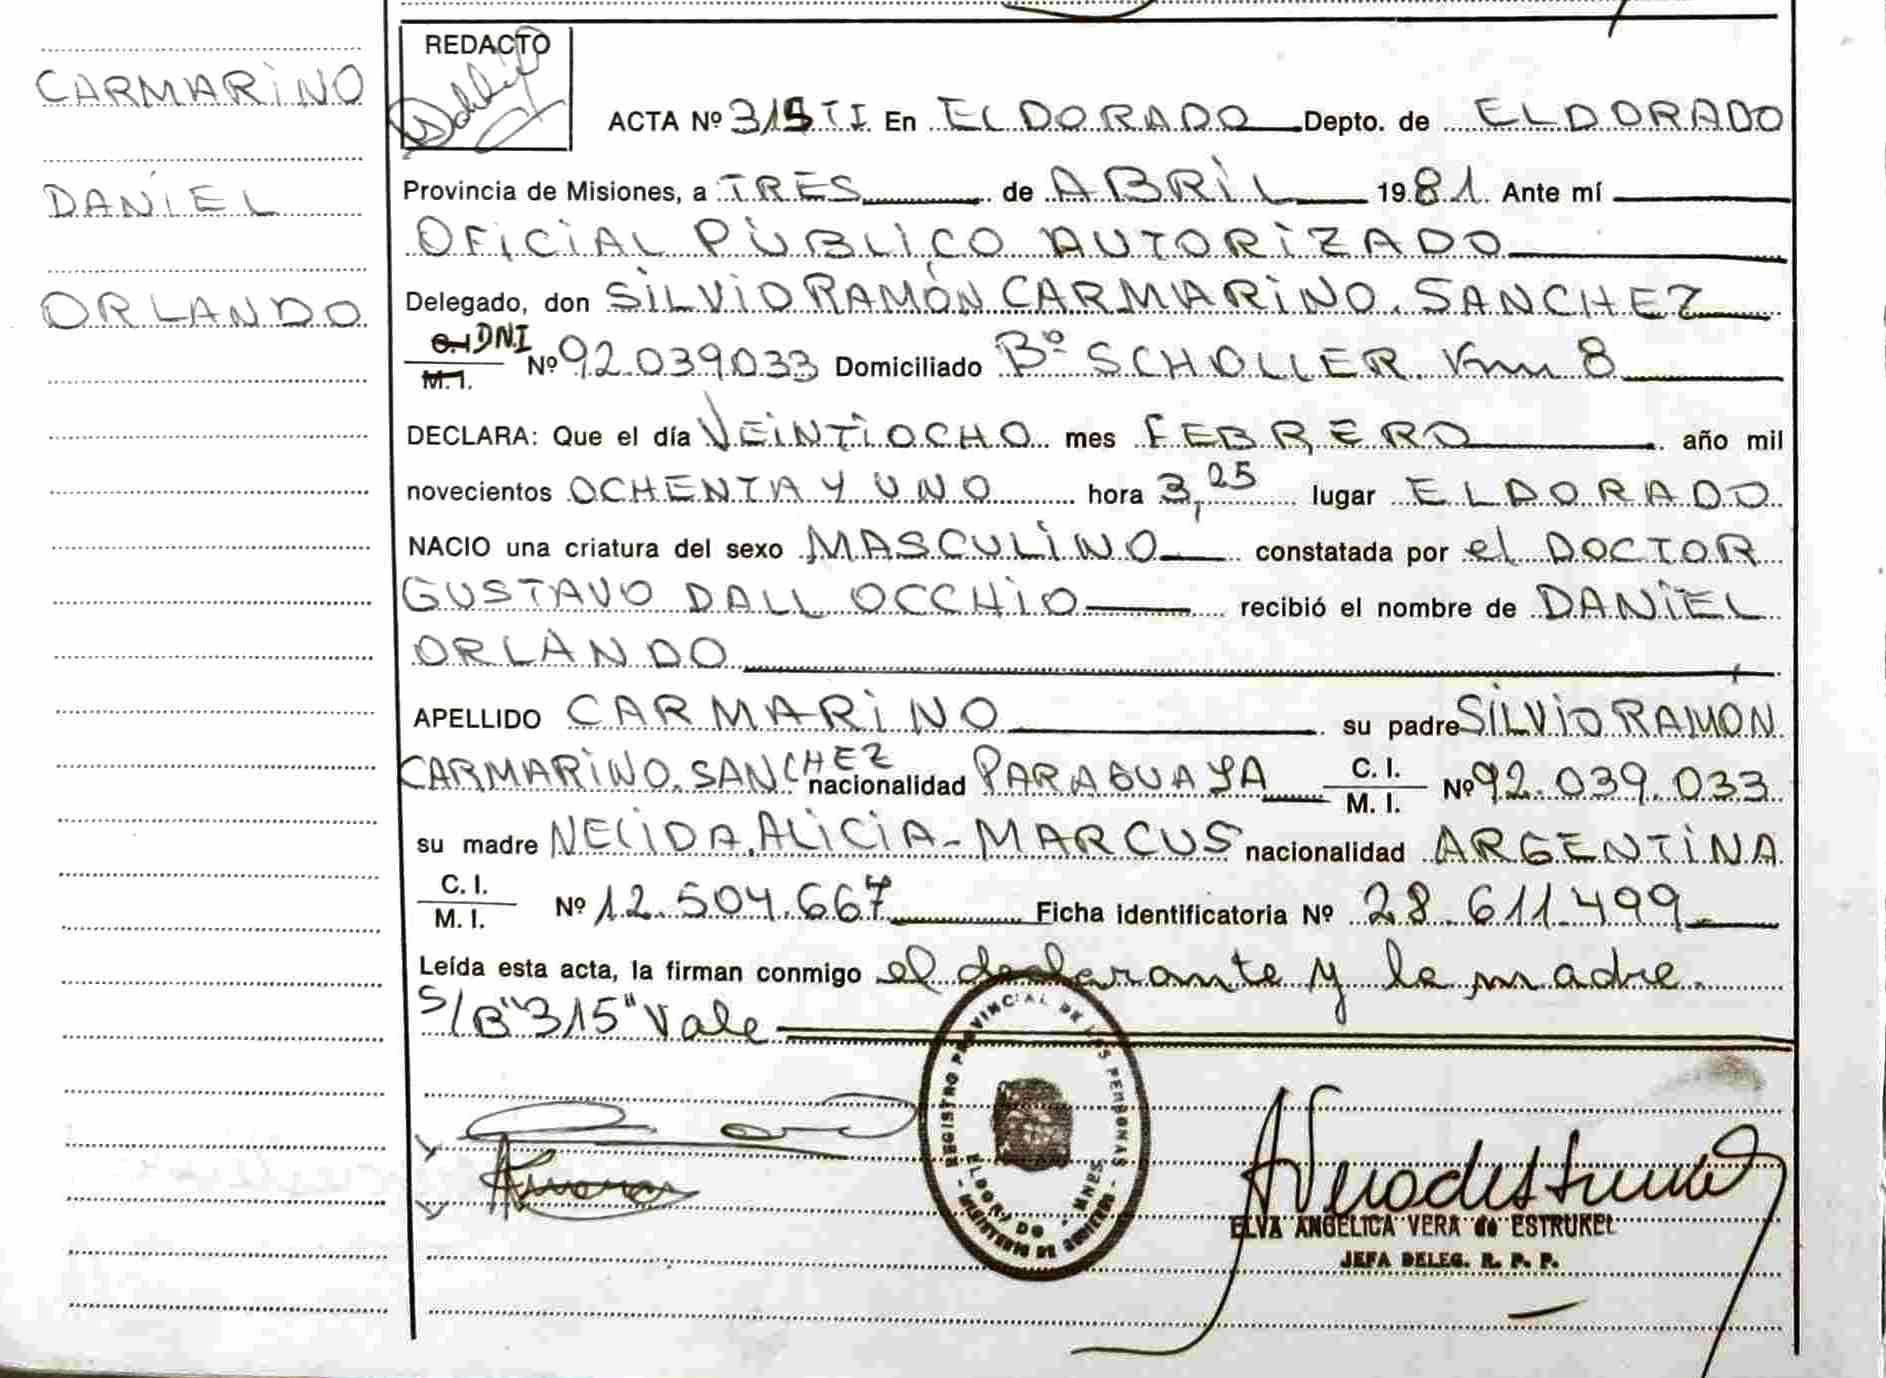 CARMARINO
DANIEL
ORLANDO
REDACTO
ACTA Nº 315 TI En ELDORADO Depto. de ELDORADO
Provincia de Misiones, a TRES de ABRIL 1981. Ante mí
OFICIAL PÚBLICO AUTORIZADO
Delegado, don SILVIO RAMÓN CARMARINO. SANCHEZ
C.I. DNI
M.I. Nº 92.039.033 Domiciliado Bº SCHOLLER. Km 8
DECLARA: Que el día VEINTIOCHO mes FEBRERO año mil
novecientos OCHENTA Y UNO hora 3,25 lugar ELDORADO
NACIO una criatura del sexo MASCULINO constatada por el DOCTOR
GUSTAVO DALL OCCHIO recibió el nombre de DANIEL
ORLANDO
APELLIDO CARMARINO su padre SILVIO RAMÓN
CARMARINO. SANCHEZ nacionalidad PARAGUAYA C. I. M. I. Nº 92.039.033
su madre NELIDA. ALICIA - MARCUS nacionalidad ARGENTINA
C. I. M. I. Nº 12.504.667 Ficha identificatoria Nº 28.611.499
Leída esta acta, la firman conmigo el declarante y la madre.
S/B "315" Vale
REGISTRO PROVINCIAL DE LAS PERSONAS - MINISTERIO DE GOBIERNO -
ELDORADO - MNES
ELVA ANGELICA VERA de ESTRUKEL
JEFA DELEG. R. P. P.